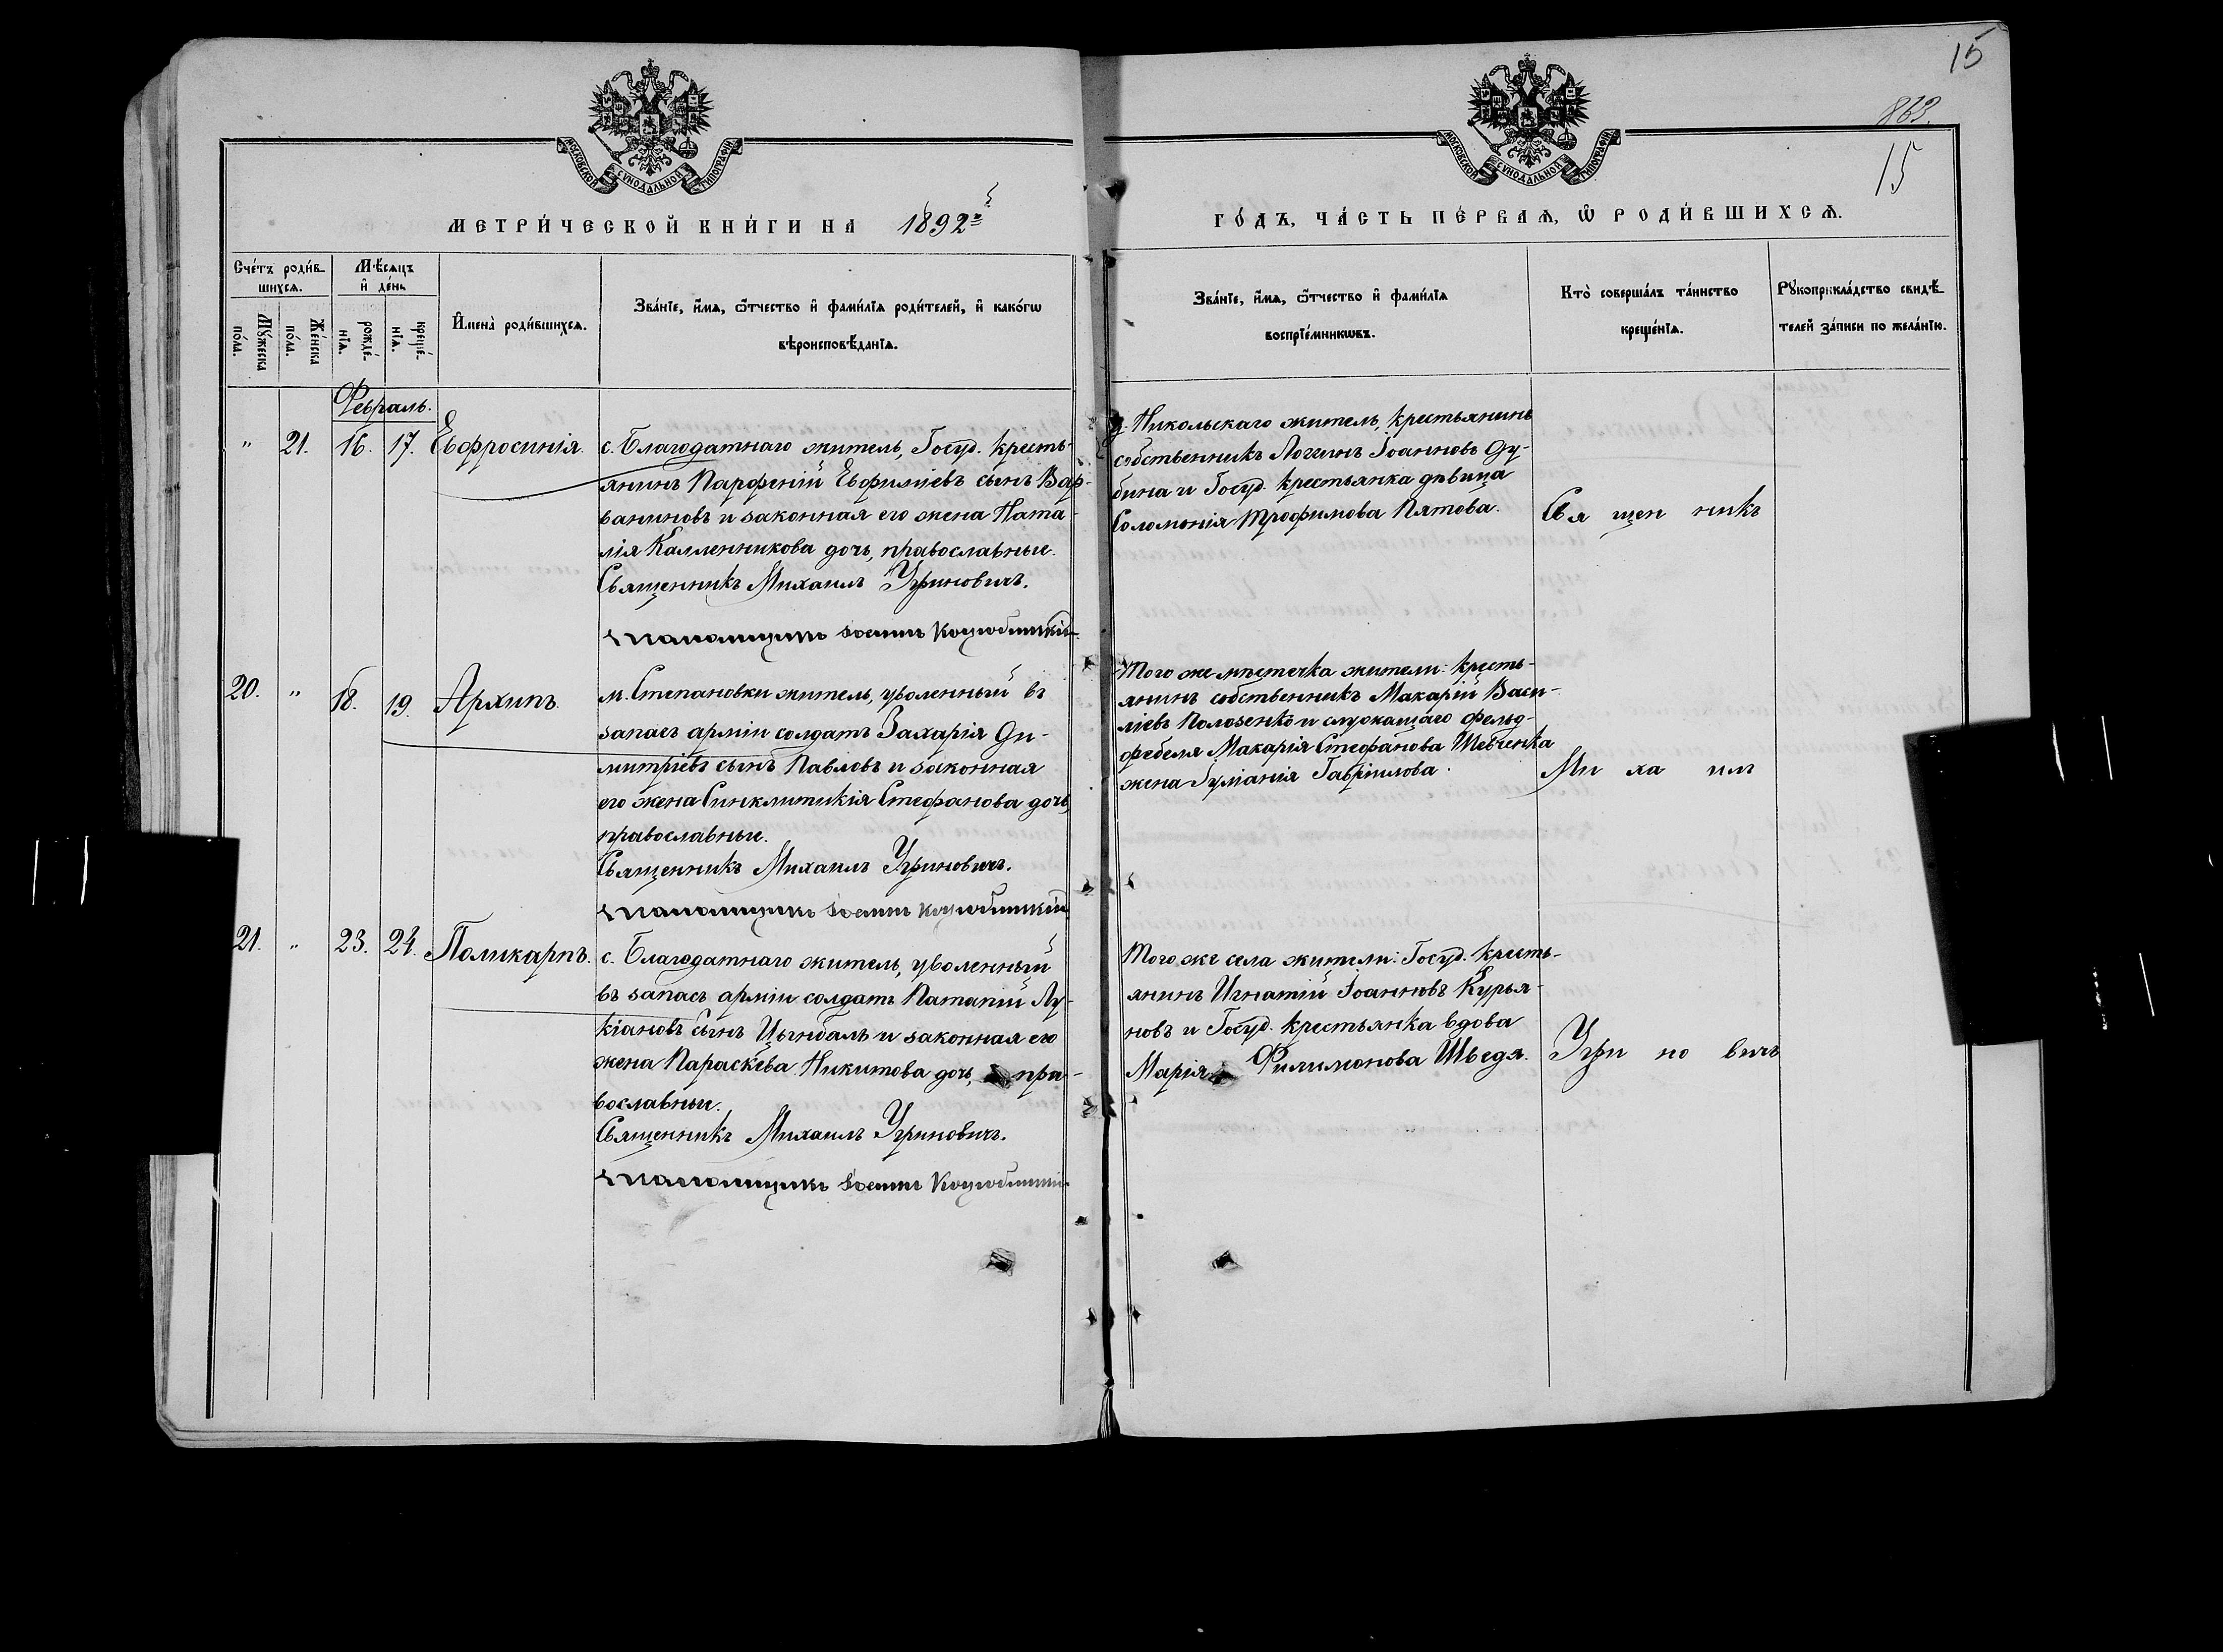 15
863.
15
МОСКОВСКОЙ СѴНОДАЛЬНОЙ ТИПОГРАФІИ
МОСКОВСКОЙ СѴНОДАЛЬНОЙ ТИПОГРАФІИ
МЕТРИ́ЧЕСКОЙ КНИ́ГИ НА 1892й
ГО́ДЪ, ЧА́СТЬ ПЕ́РВАѦ, Ѡ҆ РОДИ́ВШИХСѦ.
Сче́тъ роди́в-
шихсѧ.
Мꙋ́жеска
по́ла.
Же́нска
по́ла.
Мѣ́сѧцъ
и҆ де́нь
рожде́-
нїѧ.
креще́-
нїѧ.
И҆мена̀ роди́вшихсѧ.
Зва́нїе, и҆́мѧ, ѻ҆́тчество и҆ фами́лїѧ роди́телей, и҆ како́гѡ
вѣроисповѣ́данїѧ.
Зва́нїе, и҆́мѧ, ѻ҆́тчество и҆ фами́лїѧ
воспрїе́мникѡвъ.
Кто̀ соверша́лъ та́инство
креще́нїѧ.
Рꙋкоприкла́дство свидѣ́-
телей за́писи по жела́нїю.
Февраль.
" 21. 16. 17. Евфросинія.
с. Благодатнаго житель, Госуд. кресть-
янинъ Парфеній Евфиміевъ сынъ Вар-
ваниновъ и законная его жена Ната-
лія Каллинникова дочь, православные.
Священникъ Михаилъ Угриновичъ.
Псаломщикъ Коцюбинскій
д. Никольскаго житель, крестьянинъ
собственникъ Логгинъ Іоанновъ Ду-
бина и Госуд. крестьянка дѣвица
Соломонія Трофимова Пятова.
Свя щен никъ
20. " 18. 19. Архипъ.
м. Степановки житель, уволенный въ
запасъ арміи солдатъ Захарія Ди-
митріевъ сынъ Павловъ и законная
его жена Синклитикія Стефанова дочь,
православные.
Священникъ Михаилъ Угриновичъ.
Псаломщикъ Коцюбинскій
Того же мѣстечка жители: кресть-
янинъ собственникъ Макарій Васи-
ліевъ Полозенко и служащаго фельд-
фебеля Макарія Стефанова Шевченка
жена Іуліанія Гавріилова.
Ми ха илъ
21. " 23. 24. Поликарпъ.
с. Благодатнаго житель, уволенный
въ запасъ арміи солдатъ Патапій Лу-
кіановъ сынъ Цымбалъ и законная его
жена Параскева Никитова дочь, пра-
вославные.
Священникъ Михаилъ Угриновичъ.
Псаломщикъ Коцюбинскій
Того же села жители: Госуд. кресть-
янинъ Игнатій Іоанновъ Курья-
новъ и Госуд. крестьянка вдова
Марія Филимонова Шведя.
Угри но вичъ